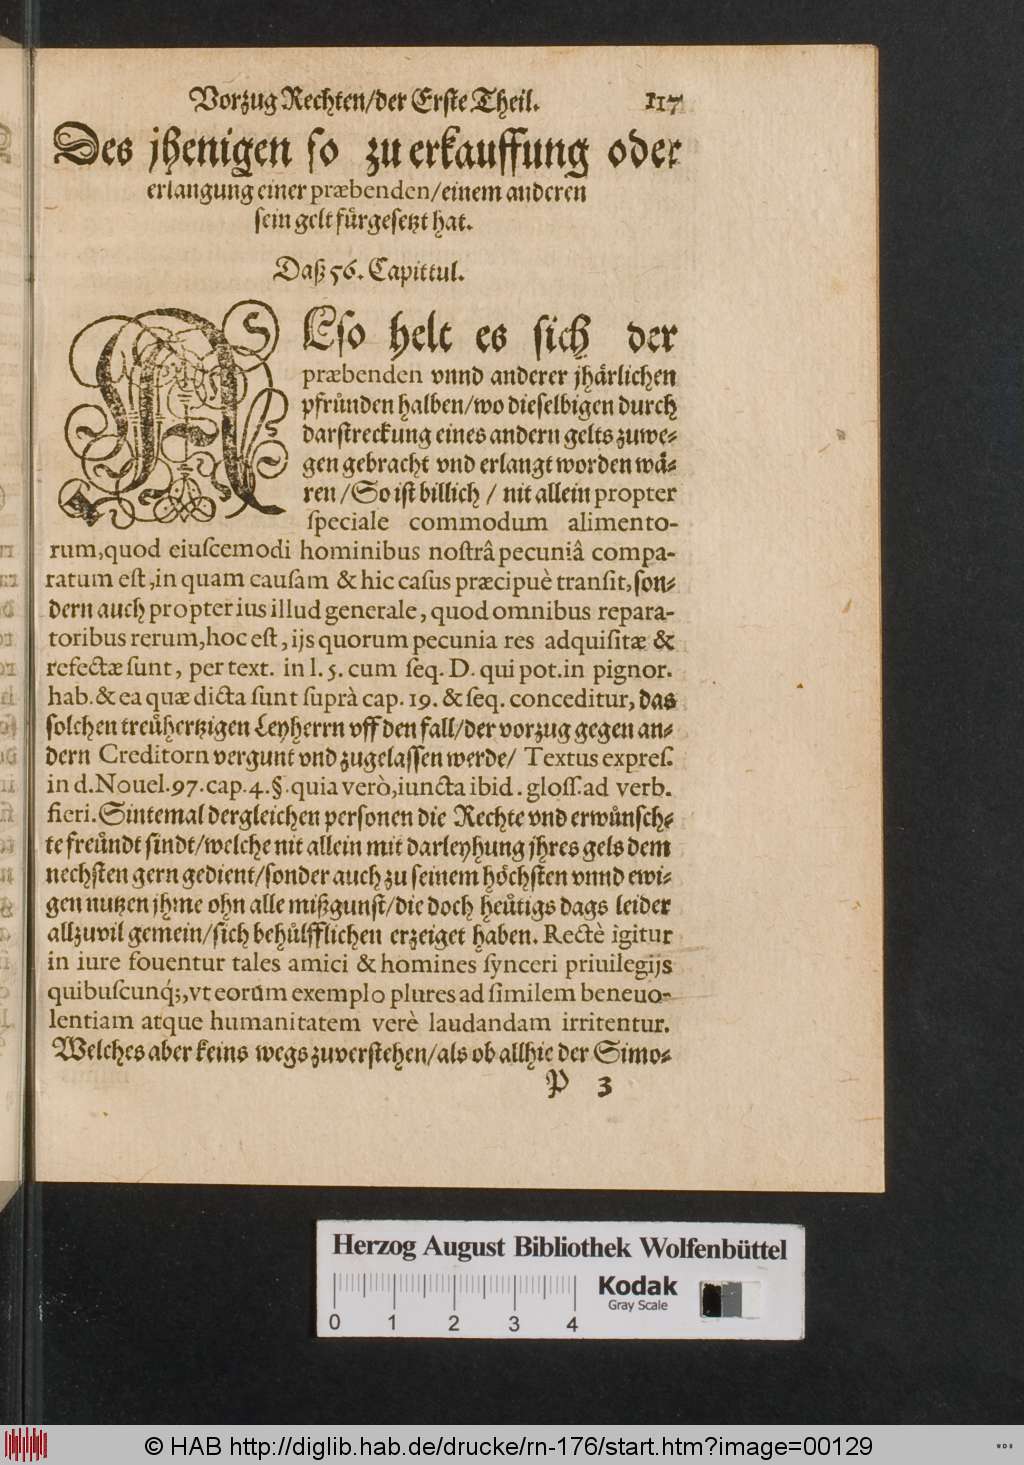 Vorzug Rechten/der Erste Theil. 117
Des jhenigen so zu erkauffung oder
erlangung einer præbenden/einem anderen
sein gelt fuͤrgesetzt hat.
Daß 56. Capittul.
Eso helt es sich der
præbenden vnnd anderer jhaͤrlichen
pfruͤnden halben/wo dieselbigen durch
darstreckung eines andern gelts zuwe⸗
gen gebracht vnd erlangt worden waͤ⸗
ren/So ist billich/ nit allein propter
speciale commodum alimento-
rum,quod eiuscemodi hominibus nostrâ pecuniâ compa-
ratum est,in quam causam & hic casus præcipuè transit,son⸗
dern auch propter ius illud generale, quod omnibus repara-
toribus rerum,hoc est, ijs quorum pecunia res adquisitæ &
refectæ sunt, per text. in l. 5. cum seq. D. qui pot. in pignor.
hab. & ea quæ dicta sunt suprà cap. 19. & seq. conceditur, das
solchen treuͤhertzigen Leyherrn vff den fall/der vorzug gegen an⸗
dern Creditorn vergunt vnd zugelassen werde/ Textus expres.
in d. Nouel. 97. cap. 4. §. quia verò,iuncta ibid. gloss. ad verb.
fieri. Sintemal dergleichen personen die Rechte vnd erwuͤnsch⸗
te freuͤndt sindt/welche nit allein mit darleyhung jhres gels dem
nechsten gern gedient/sonder auch zu seinem hoͤchsten vnnd ewi⸗
gen nutzen jhme ohn alle mißgunst/die doch heuͤtigs dags leider
allzuvil gemein/sich behuͤlfflichen erzeiget haben. Rectè igitur
in iure fouentur tales amici & homines synceri priuilegijs
quibuscunq́;,vt eorum exemplo plures ad similem beneuo-
lentiam atque humanitatem verè laudandam irritentur.
Welches aber keins wegs zuverstehen/als ob allhie der Simo⸗
P 3
Herzog August Bibliothek Wolfenbüttel
Kodak
Gray Scale
0 1 2 3 4
© HAB http://diglib.hab.de/drucke/rn-176/start.htm?image=00129